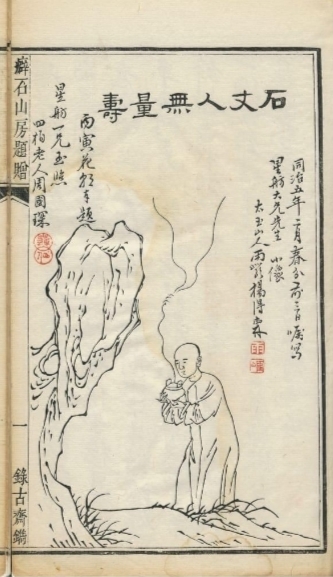 石丈人無量壽
同治五年二月春分前三日囑寫
星舫大兄先生小像
太玉山人雨
楊得霖
丙寅花朝手題
星舫一兄玉照
四柏老人周國琛
癖石山房題贈
一
錄古齋鐫